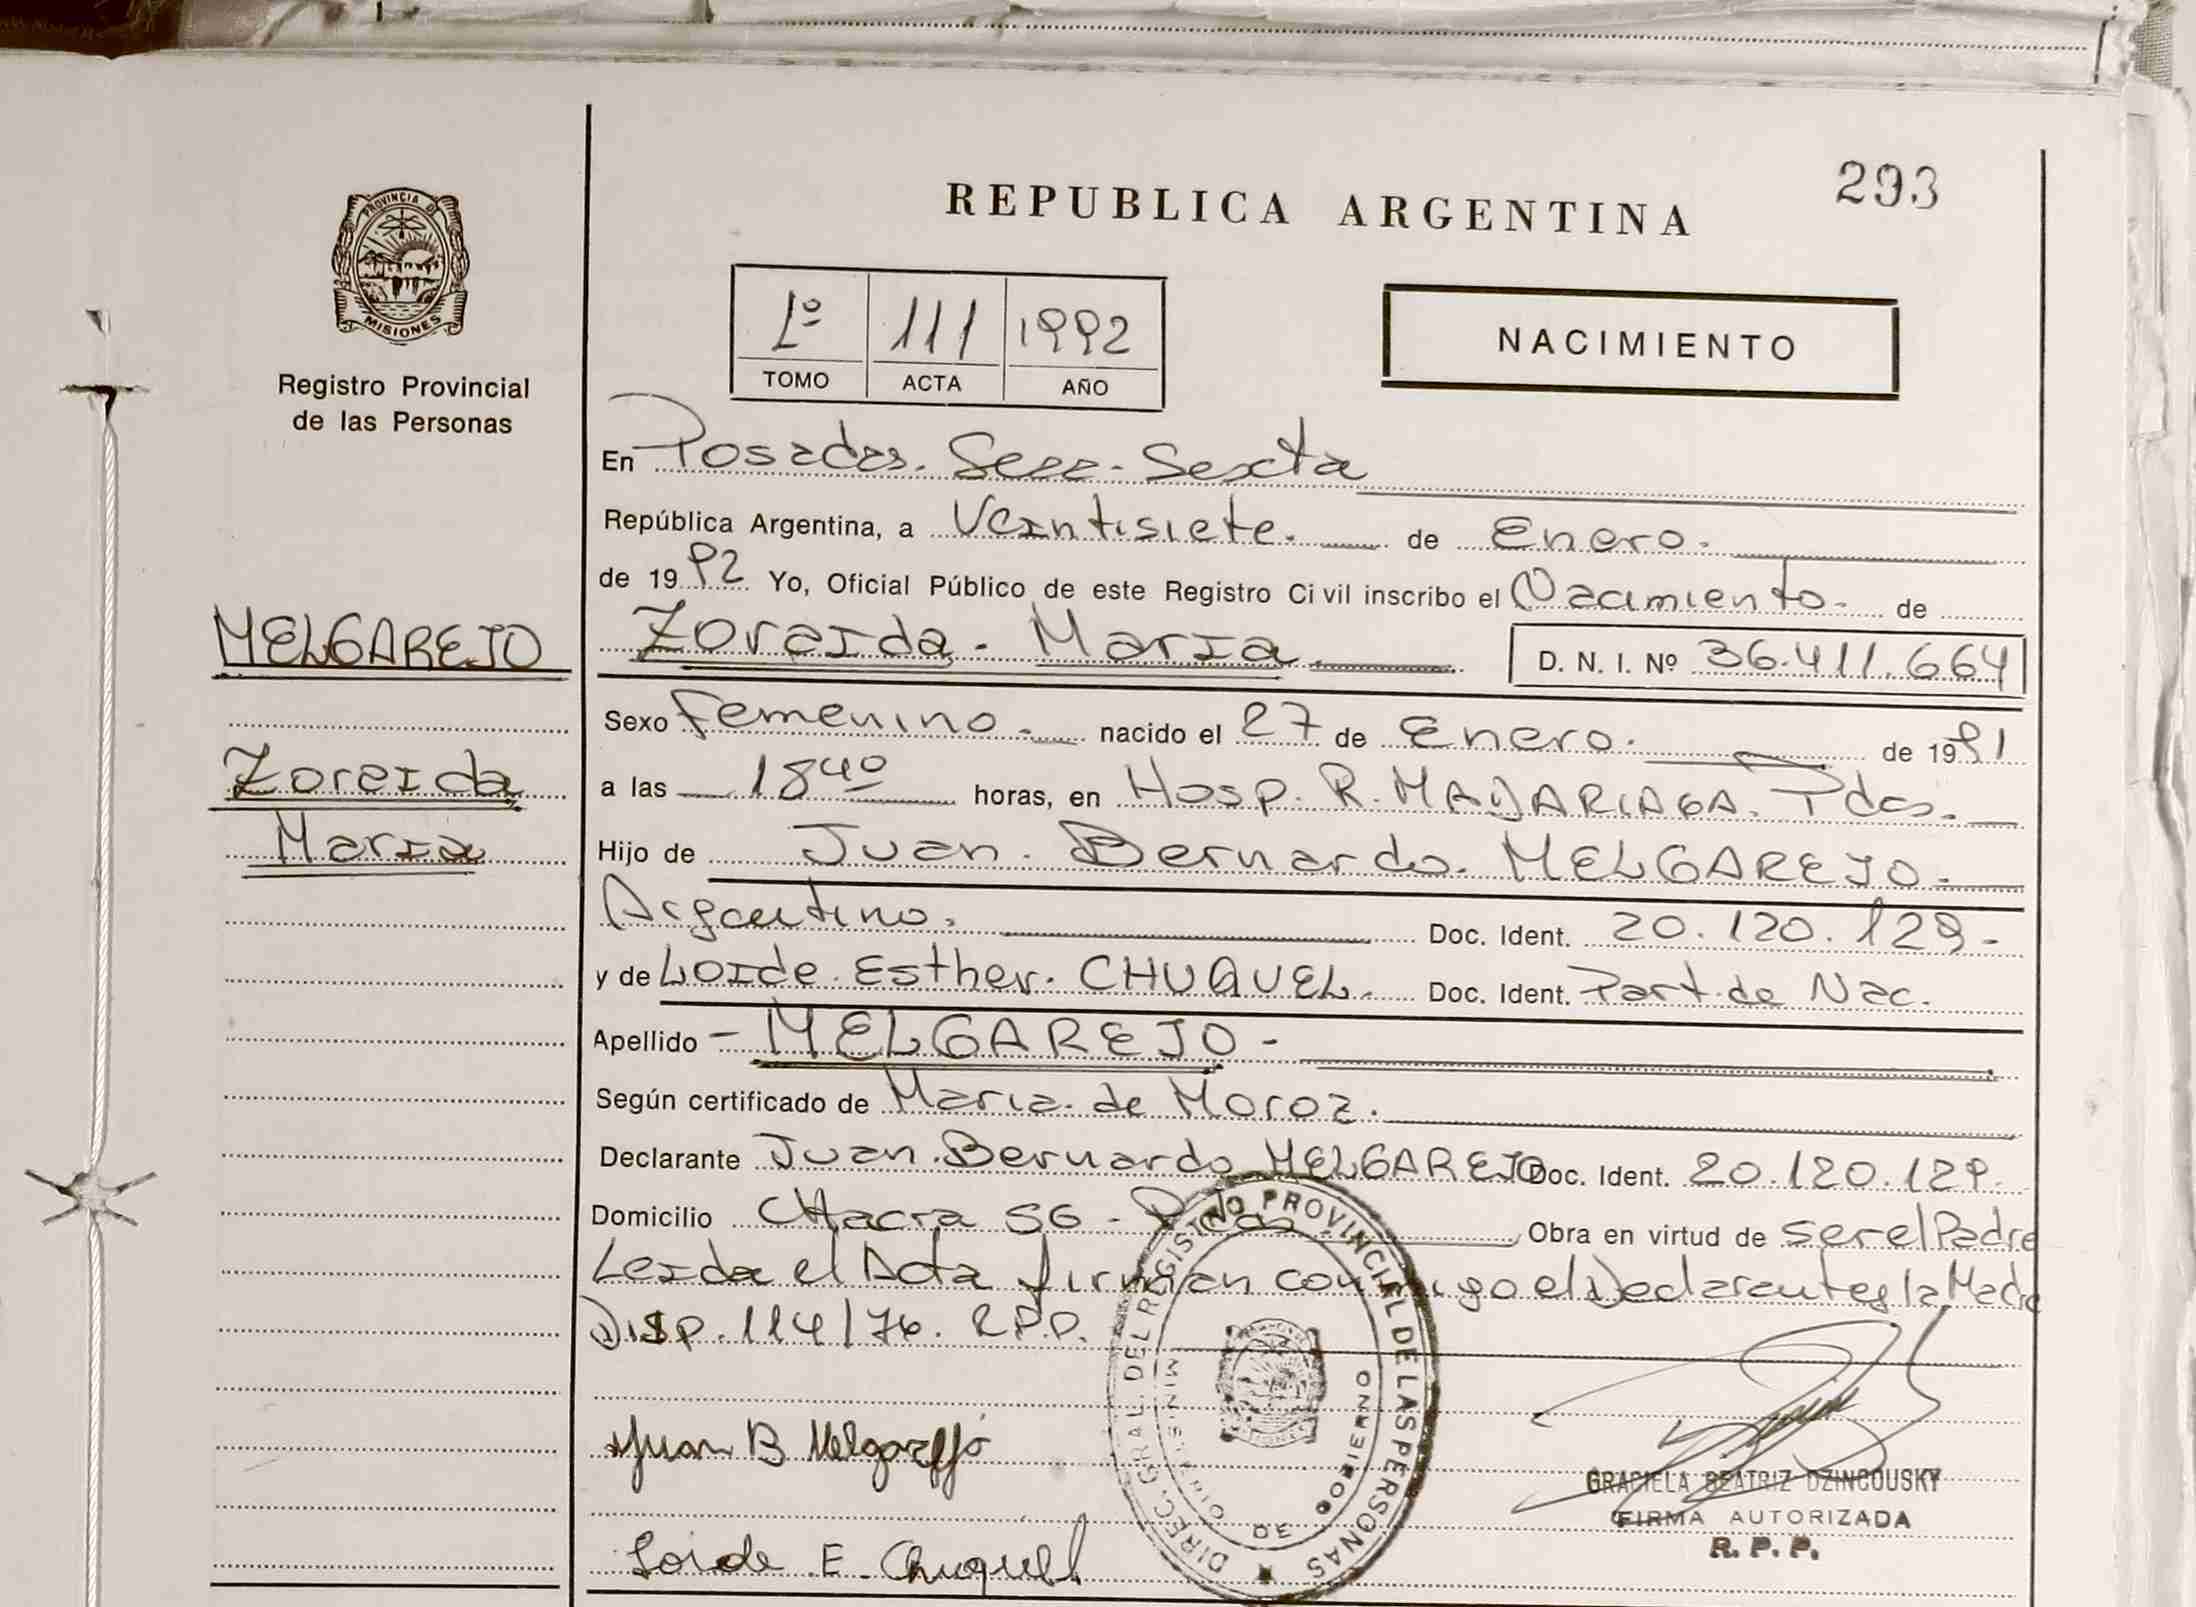 293
REPUBLICA ARGENTINA
PROVINCIA DE
MISIONES
Registro Provincial
de las Personas
1º 111 1992
TOMO ACTA AÑO
NACIMIENTO
En Posadas. Secc. Sexta
República Argentina, a Veintisiete. de Enero.
de 1992 Yo, Oficial Público de este Registro Civil inscribo el Nacimiento. de
MELGAREJO
Zoraida. María D. N. I. Nº 36.411.664
Sexo Femenino. nacido el 27 de Enero. de 1991
Zoraida
a las 18 40 horas, en Hosp. R. MADARIAGA. Pdas.
María
Hijo de Juan. Bernardo. MELGAREJO.
Argentino. Doc. Ident. 20.120.129-
y de Loide. Esther. CHUQUEL. Doc. Ident. Part. de Nac.
Apellido - MELGAREJO -
Según certificado de María. de Moroz.
Declarante Juan. Bernardo MELGAREJO Doc. Ident. 20.120.129.
Domicilio CHacra 56 - Pdas Obra en virtud de ser el Padre
Leida el Acta firman conmigo el Declarante y la Madre
Disp. 114/76. R.P.P.
DIREC. GRAL. DEL REGISTRO PROVINCIAL DE LAS PERSONAS
MINISTERIO DE GOBIERNO
MISIONES
Juan B Melgarejo
GRACIELA BEATRIZ DZINCOUSKY
FIRMA AUTORIZADA
R. P. P.
Loide E. Chuquel